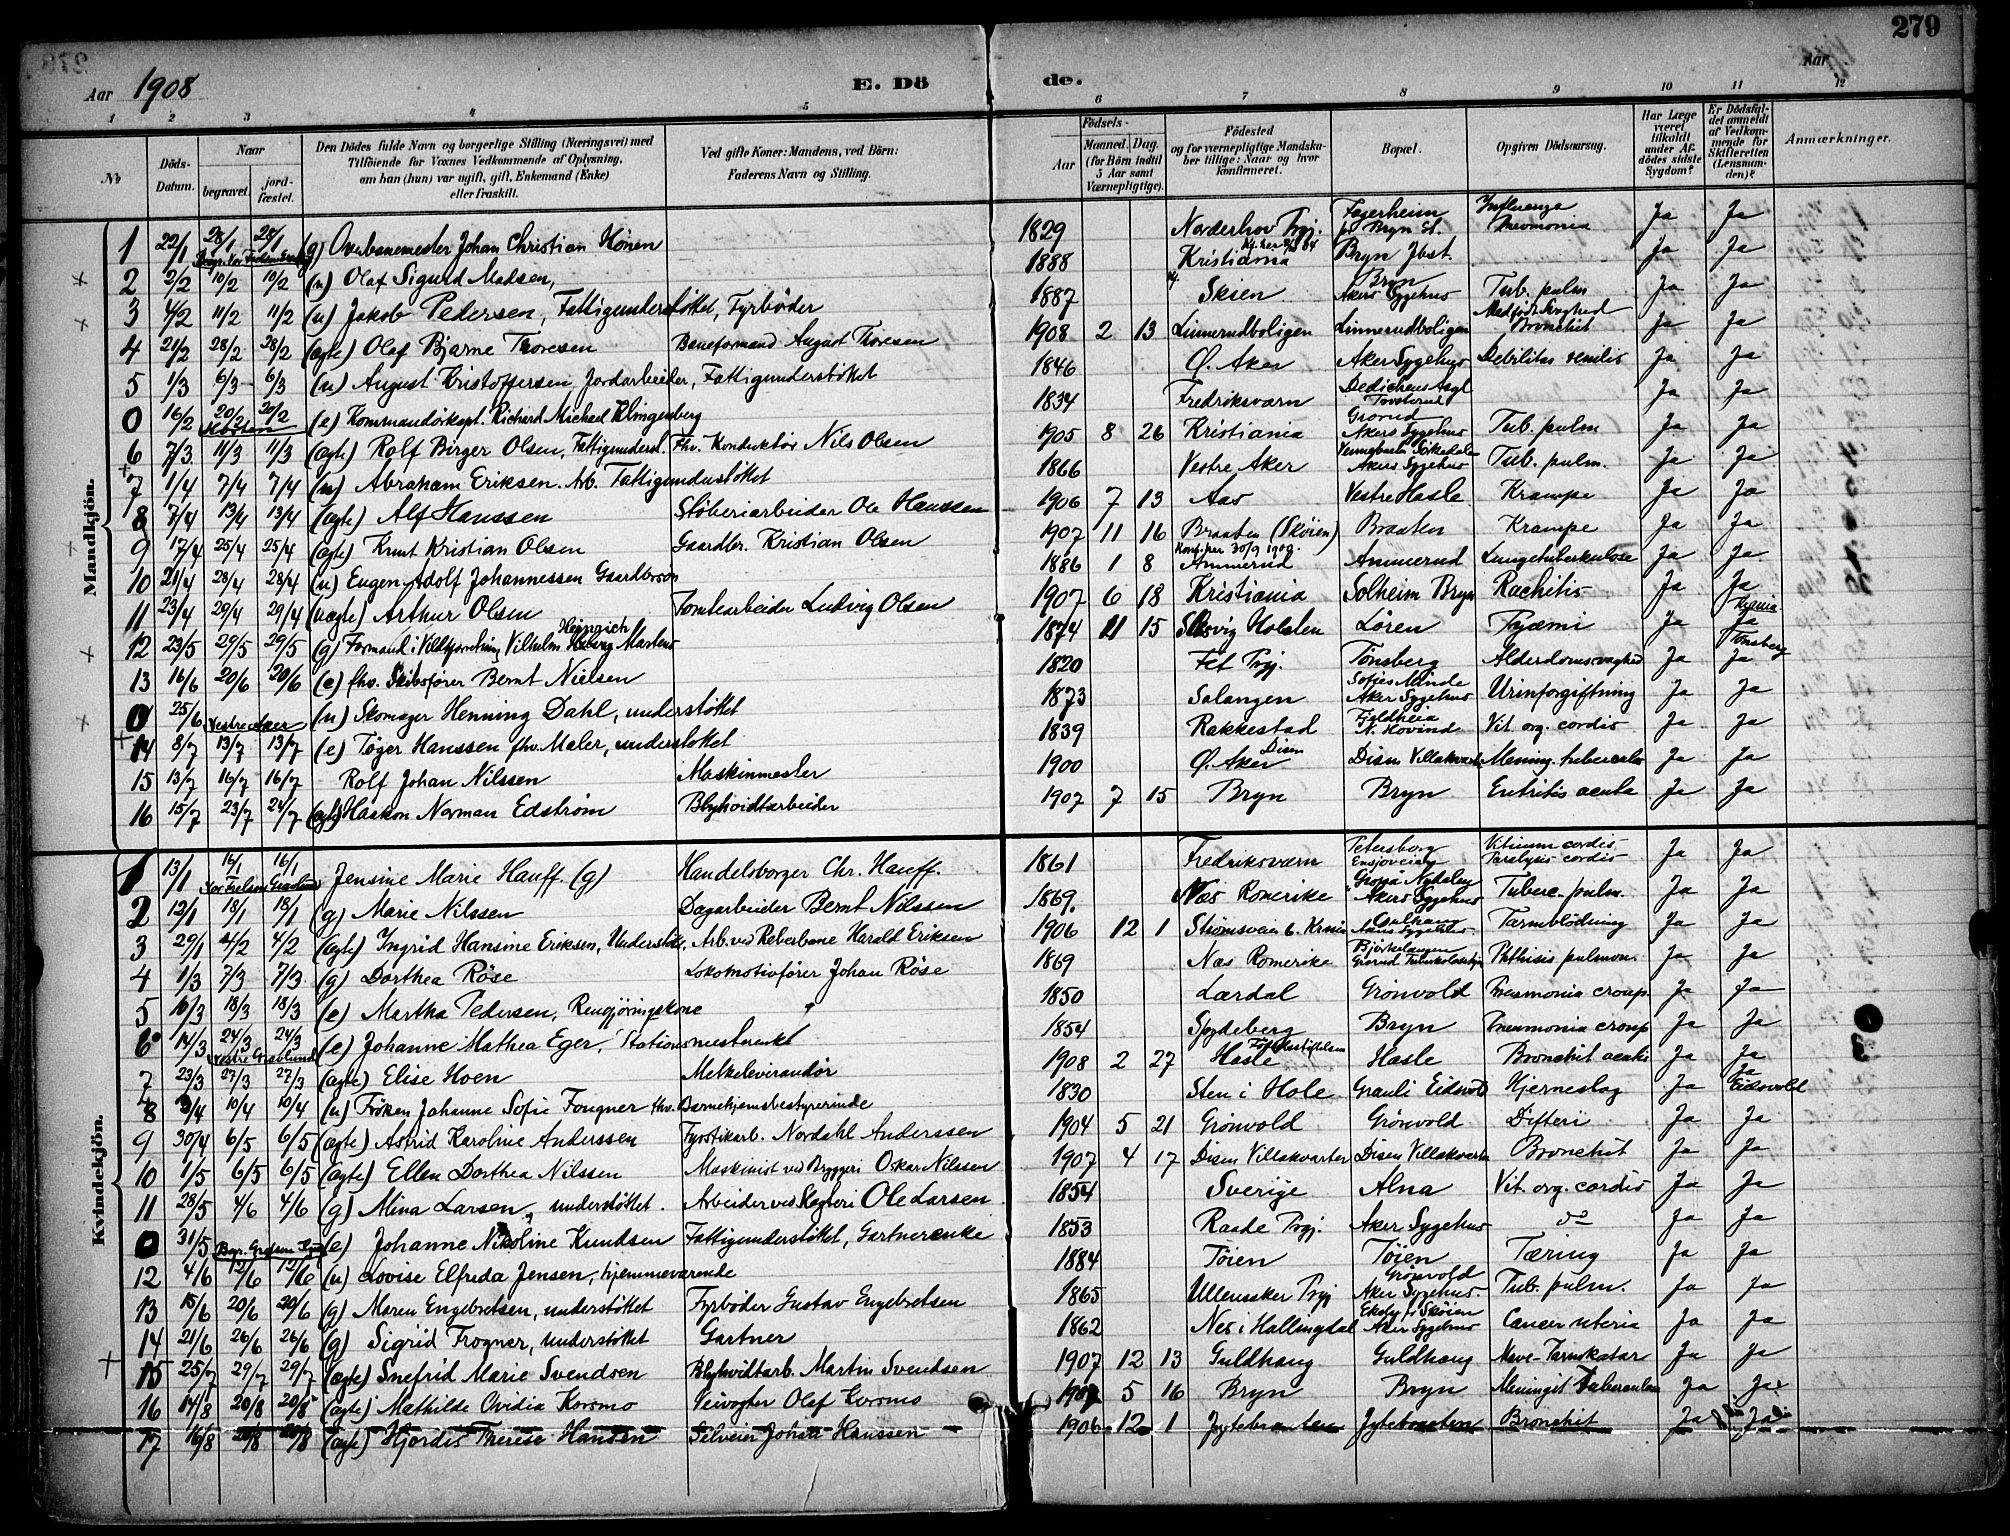 279
Aar 1908
E. Dö de.
Aar
1 2 3 4 5 6 7 8 9 10 11 12
№
Döds-Datum.
Naar
begravet.
jord-fæstet.
Den Dödes fulde Navn og borgerlige Stilling (Næringsvei) med
Tilföiende for Voxnes Vedkommende af Oplysning,
om han (hun) var ugift, gift, Enkemand (Enke)
eller fraskilt.
Ved gifte Koner: Mandens, ved Börn:
Faderens Navn og Stilling.
Födsels-
Aar
Maaned. Dag.
(for Börn indtil
5 Aar samt
Værnepligtige).
Födested
og for værnepligtige Mandska-
ber tillige: Naar og hvor
konfirmeret.
Bopæl.
Opgiven Dödsaarsag.
Har Læge
været
tilkaldt
under Af-
dödes sidste
Sygdom?
Er Dödsfal-
det anmeldt
af Vedkom-
mende for
Skifteretten
(Lensman-
den)?
Anmærkninger.
Mandkjön.
1 22/1 28/1 28/1 (g) Overbanemester Johan Christian Hönen 1829 Norderhov Prgj. Fagerheim pr Bryn St. Influenza Pneumonia Ja Ja
2 2/2 10/2 10/2 (u) Olaf Sigurd Madsen, 1888 Kristiania Bryn Jbst. Ja Ja
3 4/2 11/2 11/2 (u) Jakob Pedersen, Fattigunderstøttet, Fyrbøder 1887 Skien Bryn Akers Sygehus Tub. pulm Ja Ja
4 21/2 28/2 28/2 (ægte) Olaf Bjarne Thoresen Baneformand August Thoresen 1908 2 13 Linnerudboligen Linnerudboligen Medfødt Svaghed Bronchit Ja Ja
5 1/3 6/3 6/3 (u) August Kristoffersen, Jordarbeider, Fattigunderstøttet 1846 Ø. Aker Aker Sygehus Debilitas senilis Ja Ja
0 16/2 20/2 20/2 Horten (e) Kommandørkapt. Richard Michael Klingenberg 1834 Fredriksværn Dedichens Asyl Ja Ja
6 7/3 11/3 11/3 (ægte) Rolf Birger Olsen, Fattigunderst. Fhv. Konduktør Nils Olsen 1905 8 26 Kristiania Grorud Akers Sygehus Tub. pulm Ja Ja
7 1/4 7/4 7/4 (u) Abraham Eriksen. Arb. Fattigunderstøttet 1866 Vestre Aker Akers Sygehus Tub. pulm. Ja Ja
8 7/4 13/4 13/4 (ægte) Alf Hanssen Støberiarbeider Ole Hanssen 1906 7 13 Aas Vestre Hasle Krampe Ja Ja
9 17/4 25/4 25/4 (ægte) Knut Kristian Olsen Gaardbr. Kristian Olsen 1907 11 16 Braaten (Skøien) Braaten Krampe Ja Ja
10 21/4 28/4 28/4 (u) Eugen Adolf Johannessen Gaardbrsøn 1886 1 8 Ammerud Ammerud Lungetuberkulose Ja Ja
11 23/4 29/4 29/4 (uægte) Arthur Olsen Tomtearbeider Ludvig Olsen 1907 6 18 Kristiania Solheim Bryn Rachitis Ja Ja
12 23/5 29/5 29/5 (g) Formand Vilhelm Heinrich Martens 1874 11 15 Slesvig Holsten Løren Pyæmi Ja Ja
13 16/6 20/6 20/6 (e) fhv. Skibsfører Bernt Nielsen 1820 Fet Prgj. Tønsberg Alderdomssvaghed Ja Ja Tønsberg
0 25/6 Vestre Aker (u) Skomager Henning Dahl, understøttet 1873 Salangen Sofies Minde Aker Sygehus Urinforgiftning Ja Ja
14 8/7 13/7 13/7 (e) Tøger Hanssen fhv. Maler, understøttet 1839 Rakkestad Fjeldheia N. Hovind Vit. org. cordis Ja Ja
15 13/7 16/7 16/7 Rolf Johan Nilssen Maskinmester 1900 Disen Ø. Aker Disen Villakvarter Mening. tubercular Ja Ja
16 15/7 23/7 24/7 (ægte) Haakon Norman Edstrøm Blyhvidtarbeider 1907 7 15 Bryn Bryn Entritis acuta Ja Ja
Kvindekjön.
1 13/1 16/1 16/1 Vor Frelsers Gravlund Jensine Marie Hauff (g) Handelsborger Chr. Hauff. 1861 Fredriksværn Petersborg Ensjøveien Vitium cordis Paralysis cordis Ja Ja
2 12/1 18/1 18/1 (g) Marie Nilssen Dagarbeider Bernt Nilssen 1869. Næs Romerike Akers Sygehus Tuberc. pulm. Ja Ja
3 29/1 4/2 4/2 (ægte) Ingrid Hansine Eriksen, Understøt. Arb. ved Reberbane Harald Eriksen 1906 12 1 Strømsveien 6. Krania Akers Sygehus Tarmblödning Ja Ja
4 1/3 7/3 7/3 (g) Dorthea Røse Lokomotivfører Johan Røse 1869 Næs Romerike Bjørkelangen Grorud Phthisis pulmon. Ja Ja
5 10/3 18/3 18/3 (e) Martha Pedersen, Rengjøringskone 1850 Lærdal Grønvold Pneumonia croup. Ja Ja
6 14/3 24/3 24/3 Vestre Gravlund (e) Johanne Mathea Eger, Stationsmesterenke 1854 Spydeberg Bryn Pneumonia croup Ja Ja
7 23/3 27/3 27/3 (ægte) Elise Hoen Melkeleverandør 1908 2 27 Fødselsstiftelsen Hasle Hasle Bronchit acuta Ja Ja
8 3/4 10/4 10/4 (u) Frøken Johanne Sofie Fougner fhv. Barnehjemsbestyrerinde 1830 Sten i Hole Grauli Eidsvold Hjerneslag Ja Ja Eidsvold
9 30/4 6/5 6/5 (ægte) Astrid Karoline Anderssen Fyrstikarb. Nordahl Anderssen 1904 5 21 Grønvold Grønvold Difteri Ja Ja
10 1/5 6/5 6/5 (ægte) Ellen Dorthea Nilssen Maskinist ved Bryggeri Oskar Nilssen 1907 4 17 Disen Villakvarter Disen Villakvarter Bronchit Ja Ja
11 28/5 4/6 4/6 (g) Mina Larsen, understøttet. Arbeider ved Høgleri Ole Larsen 1854 Sverige Alna Vit. org. cordis Ja Ja
0 31/5 (e) Johanne Nikoline Knudsen Fattigunderstøttet, Gartnerenke 1853 Raade Prgj. Aker Sygehus do Ja Ja
12 4/6 12/6 12/6 (u) Lovise Elfreda Jensen, hjemmeværende 1884 Tøien Tøien Tæring Ja Ja
13 15/6 20/6 20/6 (g) Maren Engebretsen, understøttet Fyrbøder Gustav Engebretsen 1865 Ullensaker Prgj Grønvold Aker Sygehus Tub. pulm. Ja Ja
14 21/6 26/6 26/6 (g) Sigrid Frogner, understøttet Gartner 1862 Nes i Hallingdal Ekely i Skøien Aker Sygehus Cancer uteria Ja Ja
15 25/7 29/7 29/7 (ægte) Snefrid Marie Svendsen Blyhvidtarb. Martin Svendsen 1907 12 13 Guldhaug Guldhaug Mave-Tarmkatar Ja Ja
16 14/8 20/8 20/8 (ægte) Mathilde Ovidia Korsmo Veivogter Olaf Korsmo 1907 5 16 Bryn Bryn Meningit Tuberculos Ja Ja
17 16/8 20/8 20/8 (ægte) Hjordis Therese Hansen Selveier Johan Hanssen 1906 12 1 Jytebraaten Jytebraaten Bronchit Ja Ja